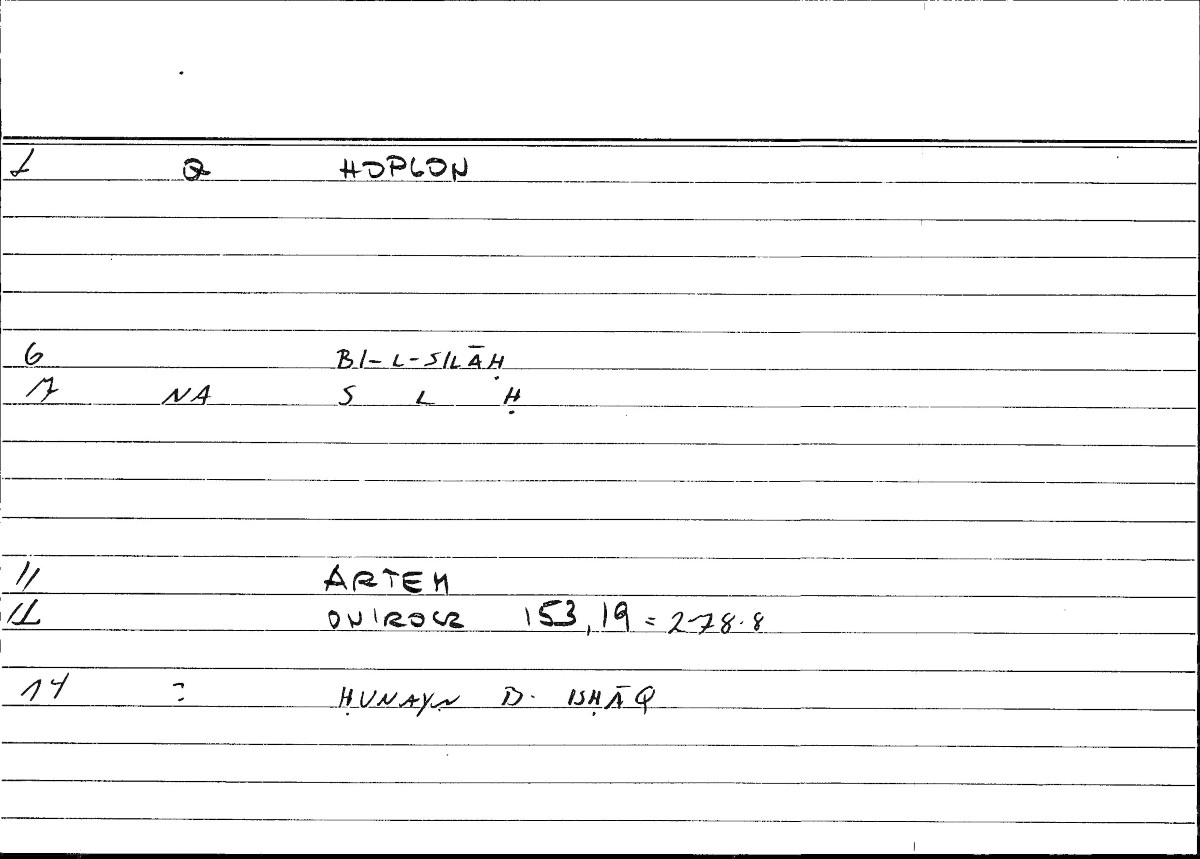 1 Q HOPLON
6 BI-L-SILĀḤ
7 NA S L Ḥ
11 ARTEM
12 ONIROCR 153,19 = 278.8
14 : ḤUNAYN B. ISḤĀQ